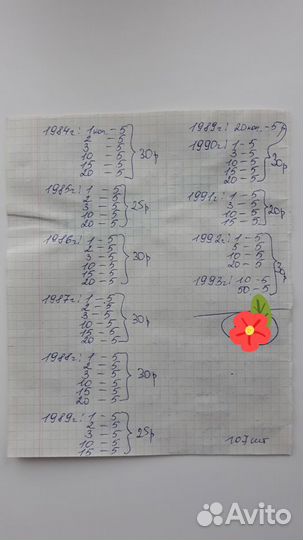 1984г: 1коп. – 5
2 – 5
3 – 5
10 – 5
15 – 5
20 – 5
30р
1985г: 1 – 5
2 – 5
3 – 5
10 – 5
20 – 5
25р
1986г: 1 – 5
2 – 5
3 – 5
10 – 5
15 – 5
20 – 5
30р
1987г: 1 – 5
2 – 5
3 – 5
10 – 5
15 – 5
20 – 5
30р
1988г: 1 – 5
2 – 5
3 – 5
10 – 5
15 – 5
20 – 5
30р
1989г: 1 – 5
2 – 5
3 – 5
10 – 5
15 – 5
25р
1989г: 20коп. – 5р
1990г: 1 – 5
3 – 5
10 – 5
15 – 5
20 – 5
30р
1991г: 1 – 5
3 – 5
10 – 5
15 – 5
20р
1992г: 1 – 5
5 – 5
10 – 5
20 – 5
1993г: 10 – 5
50 – 5
30р
107 шт
Avito